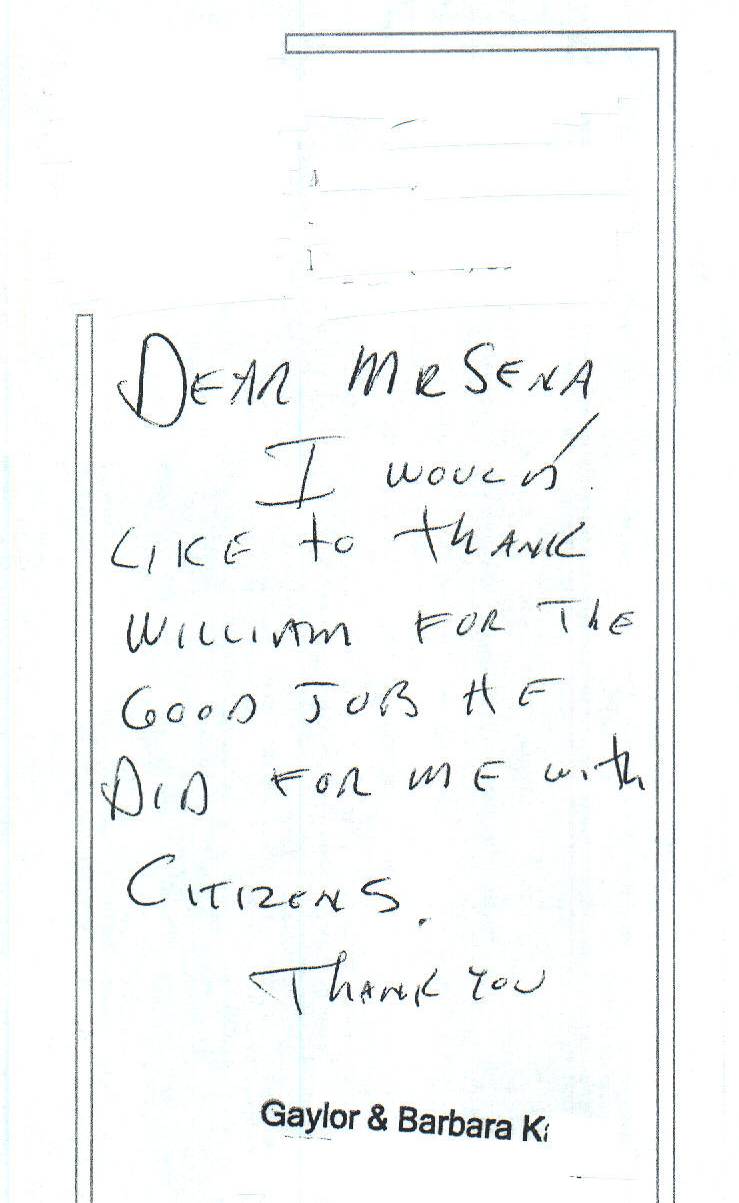 DEAR MR SENA
I WOULD
LIKE to thANK
WILLIAM FOR ThE
GOOD JOB HE
DID FOR ME with
CITIZENS.
ThANK YOU
Gaylor & Barbara K